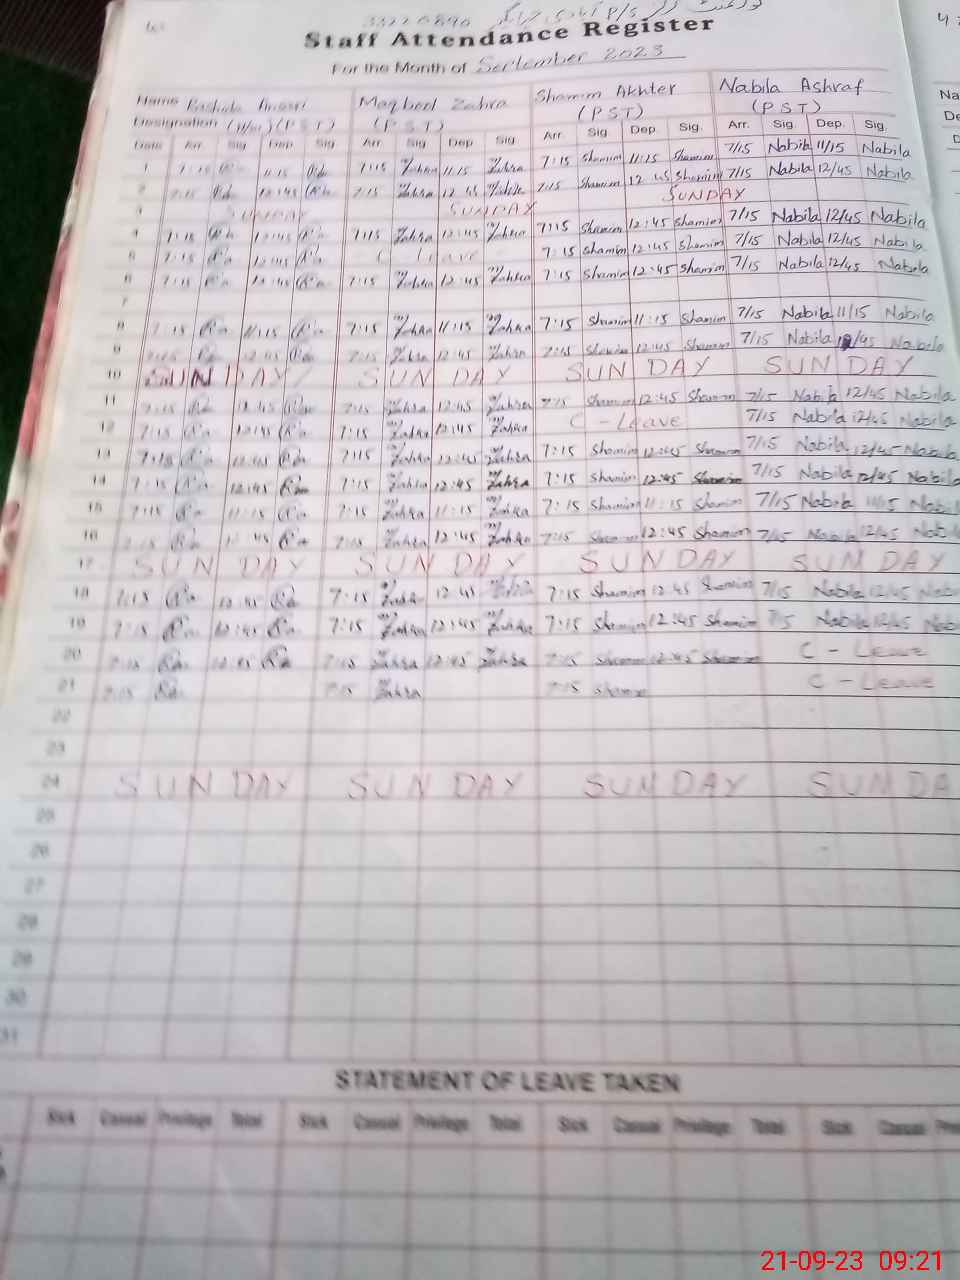 Staff Attendance Register
For the Month of September 2023
Name Maqbool Zahra Shamim Akhter Nabila Ashraf
Designation (PST) (PST) (PST) (PST)
Date Arr. Sig Dep. Sig Arr Sig Dep Sig Arr. Sig Dep. Sig. Arr. Sig. Dep. Sig.
1 7:15 11:15 7:15 Zahra 11:15 Zahra 7:15 Shamim 11:15 Shamim 7/15 Nabila 11/15 Nabila
2 7:15 12:45 7:15 Zahra 12:45 Zahra 7:15 Shamim 12:45 Shamim 7/15 Nabila 12/45 Nabila
3 SUNDAY SUNDAY SUNDAY
4 7:15 12:45 7:15 Zahra 12:45 Zahra 7:15 Shamim 12:45 Shamim 7/15 Nabila 12/45 Nabila
5 7:15 12:45 C Leave 7:15 Shamim 12:45 Shamim 7/15 Nabila 12/45 Nabila
6 7:15 12:45 7:15 Zahra 12:45 Zahra 7:15 Shamim 12:45 Shamim 7/15 Nabila 12/45 Nabila
7
8 7:15 11:15 7:15 Zahra 11:15 Zahra 7:15 Shamim 11:15 Shamim 7/15 Nabila 11/15 Nabila
9 7:15 12:45 7:15 Zahra 12:45 Zahra 7:15 Shamim 12:45 Shamim 7/15 Nabila 12/45 Nabila
10 SUNDAY SUNDAY SUNDAY SUNDAY
11 7:15 12:45 7:15 Zahra 12:45 Zahra 7:15 Shamim 12:45 Shamim 7/15 Nabila 12/45 Nabila
12 7:15 12:45 7:15 Zahra 12:45 Zahra C - Leave 7/15 Nabila 12/45 Nabila
13 7:15 12:45 7:15 Zahra 12:45 Zahra 7:15 Shamim 12:45 Shamim 7/15 Nabila 12/45 Nabila
14 7:15 12:45 7:15 Zahra 12:45 Zahra 7:15 Shamim 12:45 Shamim 7/15 Nabila 12/45 Nabila
15 7:15 11:15 7:15 Zahra 11:15 Zahra 7:15 Shamim 11:15 Shamim 7/15 Nabila 11/15 Nabil
16 7:15 12:45 7:15 Zahra 12:45 Zahra 7:15 Shamim 12:45 Shamim 7/15 Nabila 12/45 Nabil
17 SUNDAY SUNDAY SUNDAY SUNDAY
18 7:15 12:45 7:15 Zahra 12:45 Zahra 7:15 Shamim 12:45 Shamim 7/15 Nabila 12/45 Nabi
19 7:15 12:45 7:15 Zahra 12:45 Zahra 7:15 Shamim 12:45 Shamim 7/15 Nabila 12/45 Nab
20 7:15 12:45 7:15 Zahra 12:45 Zahra 7:15 Shamim 12:45 Shamim C - Leave
21 7:15 7:15 Zahra 7:15 Shamim C - Leave
22
23
24 SUNDAY SUNDAY SUNDAY SUNDA
25
26
27
28
29
30
31
STATEMENT OF LEAVE TAKEN
Sick Casual Privilege Total Sick Casual Privilege Total Sick Casual Privilege Total Sick Casual
21-09-23 09:21